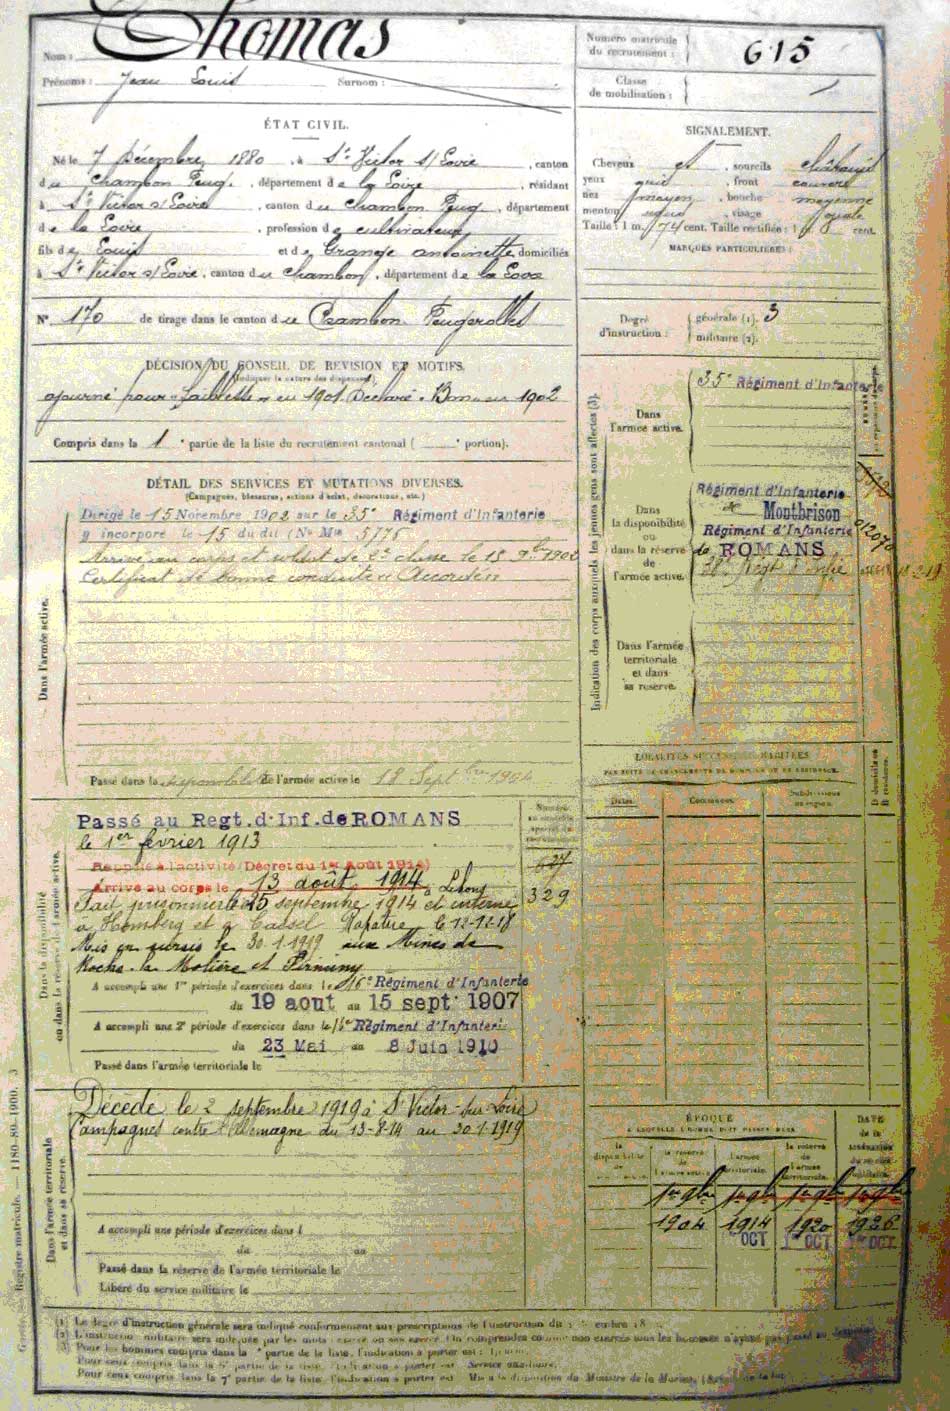 Nom : Thomas
Prénoms : Jean Louis Surnom :
Numéro matricule du recrutement : 615
Classe de mobilisation :
ÉTAT CIVIL.
Né le 7 Décembre 1880, à St Victor s/Loire, canton
du Chambon Feug., département de la Loire, résidant
à St Victor s/Loire, canton du Chambon Feug., département
de la Loire, profession de cultivateur
fils de Louis et de Grange antoinette domiciliés
à St Victor s/Loire, canton du Chambon, département de la Loire
N° 170 de tirage dans le canton du Chambon Feugerolles
SIGNALEMENT.
Cheveux et, sourcils châtains
yeux gris, front couvert
nez moyen, bouche moyenne
menton rond, visage ovale
Taille : 1 m. 74 cent. Taille rectifiée : 1 m. cent.
MARQUES PARTICULIÈRES :
Degré d'instruction :
générale (1). 3
militaire (2).
DÉCISION DU CONSEIL DE REVISION ET MOTIFS.
(Indiquer la nature des dispenses)
ajourné pour "faiblesse" en 1901. Déclaré "Bon" en 1902
Compris dans la 1e partie de la liste du recrutement cantonal ( e portion).
DÉTAIL DES SERVICES ET MUTATIONS DIVERSES.
(Campagnes, blessures, actions d'éclat, décorations, etc.)
Dans l'armée active.
Dirigé le 15 Novembre 1902 sur le 35e Régiment d'Infanterie
y incorporé le 15 du dit (No Mle 5776
Arrivé au corps et soldat de 2e classe le 15 9bre 1902
Certificat de bonne conduite "Accordé"
Passé dans la disponibilité de l'armée active le 18 Septbre 1904
Indication des corps auxquels les jeunes gens sont affectés (3).
Dans l'armée active.
35e Régiment d'Infanterie
Dans la disponibilité ou dans la réserve de l'armée active.
Régiment d'Infanterie
de Montbrison
Régiment d'Infanterie
de ROMANS
38e Régt d'Infie
Dans l'armée territoriale et dans sa réserve.
LOCALITÉS SUCCESSIVES HABITÉES
PAR SUITE DE CHANGEMENTS DE DOMICILE OU DE RÉSIDENCE.
Dates. Communes. Subdivisions de région. D domicile ou R résidence.
Dans la disponibilité ou dans la réserve de l'armée active.
Passé au Regt. d'Inf. de ROMANS
le 1er février 1913
Rappelé à l'activité (Décret du 1er Août 1914)
Arrivé au corps le 13 août 1914
à Lihons
Fait prisonnier le 25 septembre 1914 et interné
329
à Homberg et à Cassel Rapatrié le 12-12-18
Mis en sursis le 30-1-1919 aux Mines de
Roche-la-Molière et Firminy
A accompli une 1re période d'exercices dans le 16e Régiment d'Infanterie
du 19 aout au 15 sept. 1907
A accompli une 2e période d'exercices dans le 16e Régiment d'Infanterie
du 23 Mai au 8 Juin 1910
Passé dans l'armée territoriale le
Dans l'armée territoriale et dans sa réserve.
Décédé le 2 septembre 1919 à St Victor-sur-Loire
Campagnes contre l'Allemagne du 13-8-14 au 30-1-1919
A accompli une période d'exercices dans l
du au
Passé dans la réserve de l'armée territoriale le
Libéré du service militaire le
ÉPOQUE
À LAQUELLE L'HOMME DOIT PASSER DANS
la disponibilité de
la réserve de l'armée active.
l'armée territoriale.
la réserve de l'armée territoriale.
DATE de la LIBÉRATION du service militaire.
1er 9bre 1er 9bre 1er 9bre 1er 9bre
1904 1914 1920 1926
OCT 1er OCT 1er OCT
Registre matricule. — 1180-89-1900. 3
(1) Le degré d'instruction générale sera indiqué conformément aux prescriptions de l'instruction du
Pour les hommes compris dans la e partie de la liste, l'indication à porter est :
Pour ceux compris dans la 7e partie de la liste, l'indication à porter est Mis à la disposition du Ministre de la Marine.